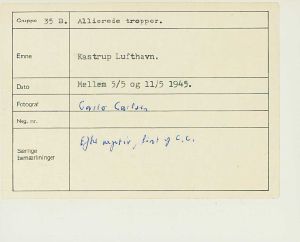 Gruppe 35 B. Allierede tropper.
Emne Kastrup Lufthavn.
Dato Mellem 5/5 og 11/5 1945.
Fotograf Carlo Carlsen
Neg. nr.
Særlige
bemærkninger
Efter negativ, lånt af C.C.